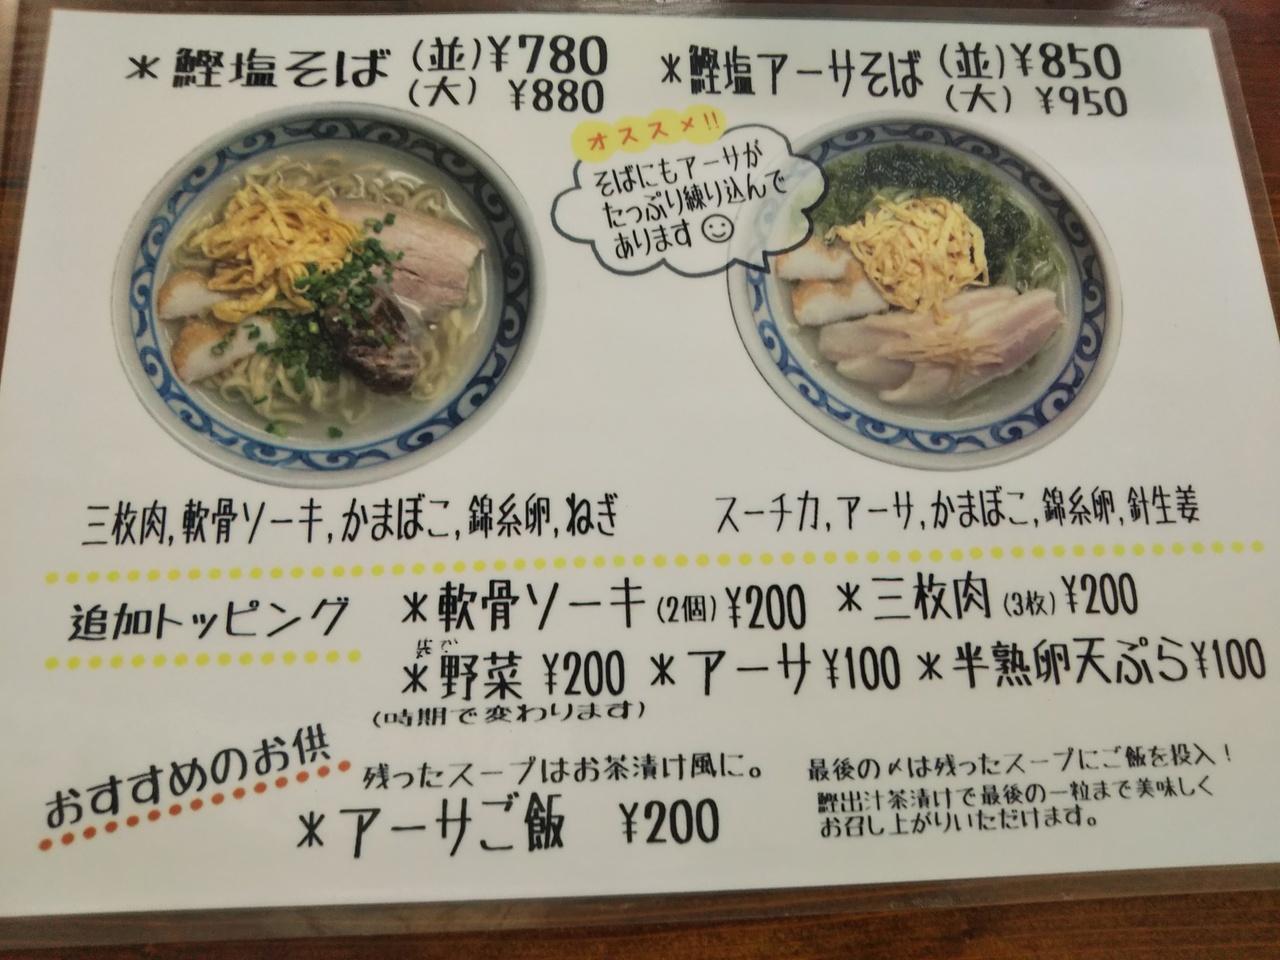 ＊鰹塩そば (並)¥780
(大) ¥880
＊鰹塩アーサそば (並)¥850
(大) ¥950
オススメ!!
そばにもアーサが
たっぷり練り込んで
あります☺
三枚肉,軟骨ソーキ,かまぼこ,錦糸卵,ねぎ
スーチカ,アーサ,かまぼこ,錦糸卵,針生姜
追加トッピング
＊軟骨ソーキ(2個)¥200 ＊三枚肉(3枚)¥200
＊野菜 ¥200 ＊アーサ¥100 ＊半熟卵天ぷら¥100
(時期で変わります)
おすすめのお供
残ったスープはお茶漬け風に。
＊アーサご飯 ¥200
最後の〆は残ったスープにご飯を投入!
鰹出汁茶漬けで最後の一粒まで美味しく
お召し上がりいただけます。